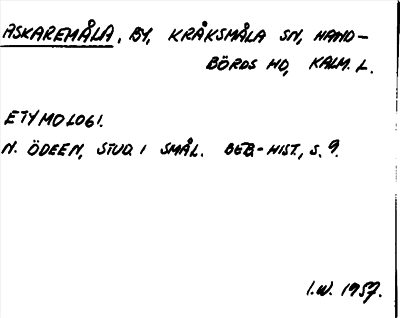 ASKAREMÅLA, BY, KRÅKSMÅLA SN, HAND-
BÖRDS HD, KALM. L.
ETYMOLOGI.
N. ÖDEEN, STUD. I SMÅL. BEB-HIST., S. 9.
I.W. 1957.